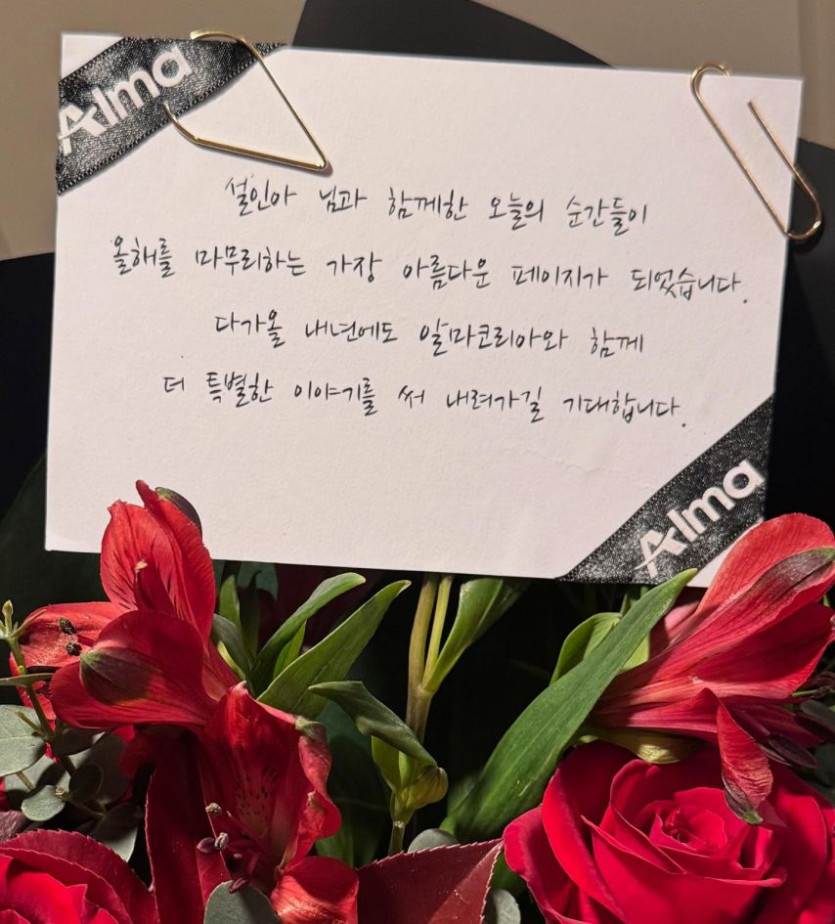 Alma
설인아 님과 함께한 오늘의 순간들이
올해를 마무리하는 가장 아름다운 페이지가 되었습니다.
다가올 내년에도 알마코리아와 함께
더 특별한 이야기를 써 내려가길 기대합니다.
Alma